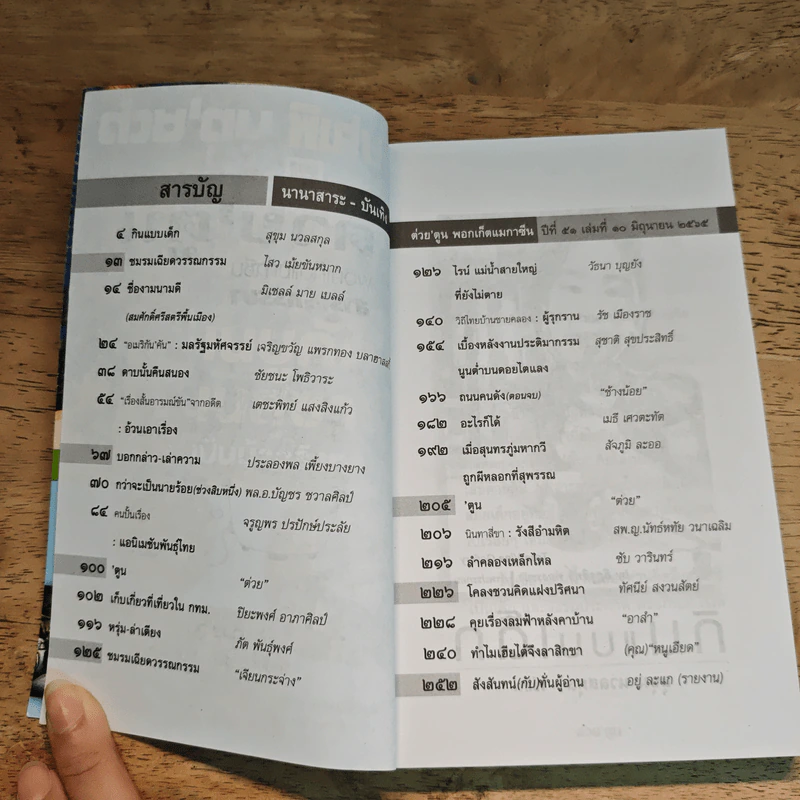 สารบัญ นานาสาระ - บันเทิง
๔ กินแบบเด็ก สุขุม นวลสกุล
๑๓ ชมรมเฉียดวรรณกรรม ไสว เม้ยขันหมาก
๑๔ ชื่องามนามดี มิเชลล์ มาย เบลล์
(สมศักดิ์ศรีสตรีพื้นเมือง)
๒๔ "อเมริกัน'คัน" : มลรัฐมหัศจรรย์ เจริญขวัญ แพรกทอง บลาฮาลส์
๓๘ ดาบนั้นคืนสนอง ชัยชนะ โพธิวาระ
๕๔ "เรื่องสั้นอารมณ์ขัน"จากอดีต เตชะพิทย์ แสงสิงแก้ว
: อ้วนเอาเรื่อง
๖๗ บอกกล่าว-เล่าความ ประลองพล เพี้ยงบางยาง
๗๐ กว่าจะเป็นนายร้อย(ช่วงสิบหนึ่ง) พล.อ.บัญชร ชวาลศิลป์
๘๔ คนปั้นเรื่อง จรูญพร ปรปักษ์ประลัย
: แอนิเมชันพันธุ์ไทย
๑๐๐ 'ตูน "ต่วย"
๑๐๒ เก็บเกี่ยวที่เที่ยวใน กทม. ปิยะพงศ์ อาภาศิลป์
๑๑๖ หรุ่ม-ล่าเตียง ภัต พันธุ์พงศ์
๑๒๕ ชมรมเฉียดวรรณกรรม "เจียนกระจ่าง"
ต่วย'ตูน พอกเก็ตแมกาซีน ปีที่ ๕๑ เล่มที่ ๑๐ มิถุนายน ๒๕๖๕
๑๒๖ ไรน์ แม่น้ำสายใหญ่ วัธนา บุญยัง
ที่ยังไม่ตาย
๑๔๐ วิถีไทยบ้านชายคลอง : ผู้รุกราน รัช เมืองราช
๑๕๔ เบื้องหลังงานประติมากรรม สุชาติ สุขประสิทธิ์
นูนต่ำบนดอยไตแลง
๑๖๖ ถนนคนดัง(ตอนจบ) "ช้างน้อย"
๑๘๒ อะไรก็ได้ เมธี เศวตะทัต
๑๙๒ เมื่อสุนทรภู่มหากวี สัจภูมิ ละออ
ถูกผีหลอกที่สุพรรณ
๒๐๕ 'ตูน "ต่วย"
๒๐๖ นินทาสี่ขา : รังสีอำมหิต สพ.ญ.นัทธ์หทัย วนาเฉลิม
๒๑๖ ลำคลองเหล็กไหล ซับ วารินทร์
๒๒๖ โคลงชวนคิดแฝงปริศนา ทัศนีย์ สงวนสัตย์
๒๒๘ คุยเรื่องลมฟ้าหลังคาบ้าน "อาสำ"
๒๔๐ ทำไมเฮียไต้จึงลาสิกขา (คุณ)"หนูเอียด"
๒๕๒ สังสันทน์(กับ)ทั่นผู้อ่าน อยู่ ละแก (รายงาน)